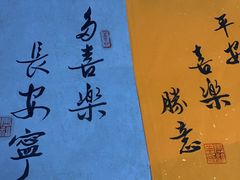 多喜樂
長安寧
平安
喜樂
勝意